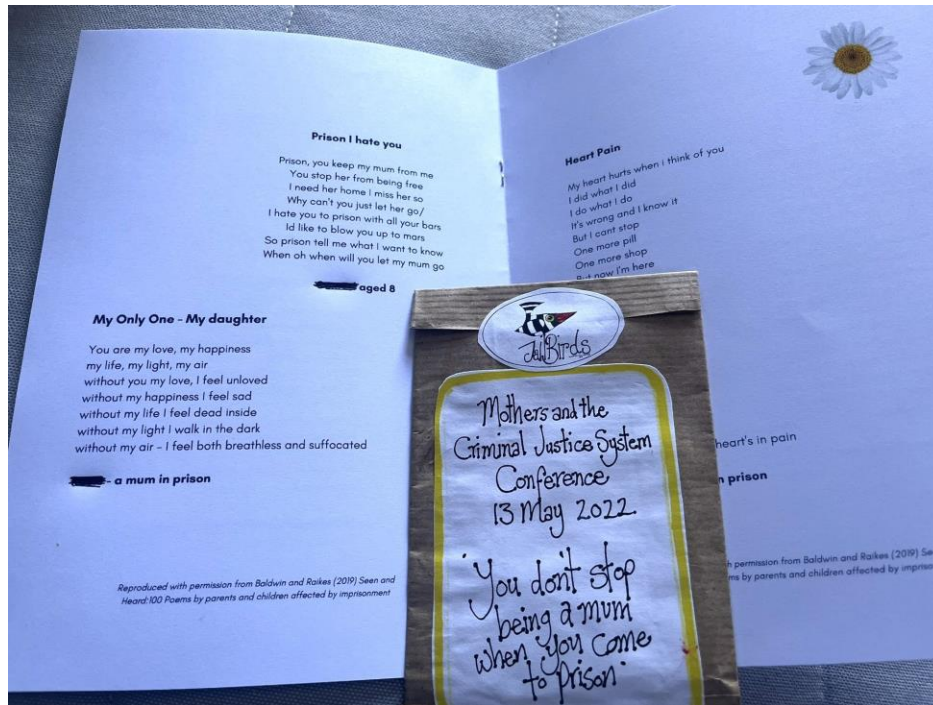 Prison I hate you
Prison, you keep my mum from me
You stop her from being free
I need her home I miss her so
Why can't you just let her go/
I hate you to prison with all your bars
Id like to blow you up to mars
So prison tell me what I want to know
When oh when will you let my mum go
aged 8
My Only One - My daughter
You are my love, my happiness
my life, my light, my air
without you my love, I feel unloved
without my happiness I feel sad
without my life I feel dead inside
without my light I walk in the dark
without my air - I feel both breathless and suffocated
- a mum in prison
Reproduced with permission from Baldwin and Raikes (2019) Seen and
Heard:100 Poems by parents and children affected by imprisonment
Heart Pain
My heart hurts when i think of you
I did what I did
I do what I do
It's wrong and I know it
But I cant stop
One more pill
One more shop
But now I'm here
heart's in pain
prison
permission from Baldwin and Raikes (2019)
by parents and children affected by
JailBirds
Mothers and the
Criminal Justice System
Conference
13 May 2022
'You don't stop
being a mum
when you come
to prison'